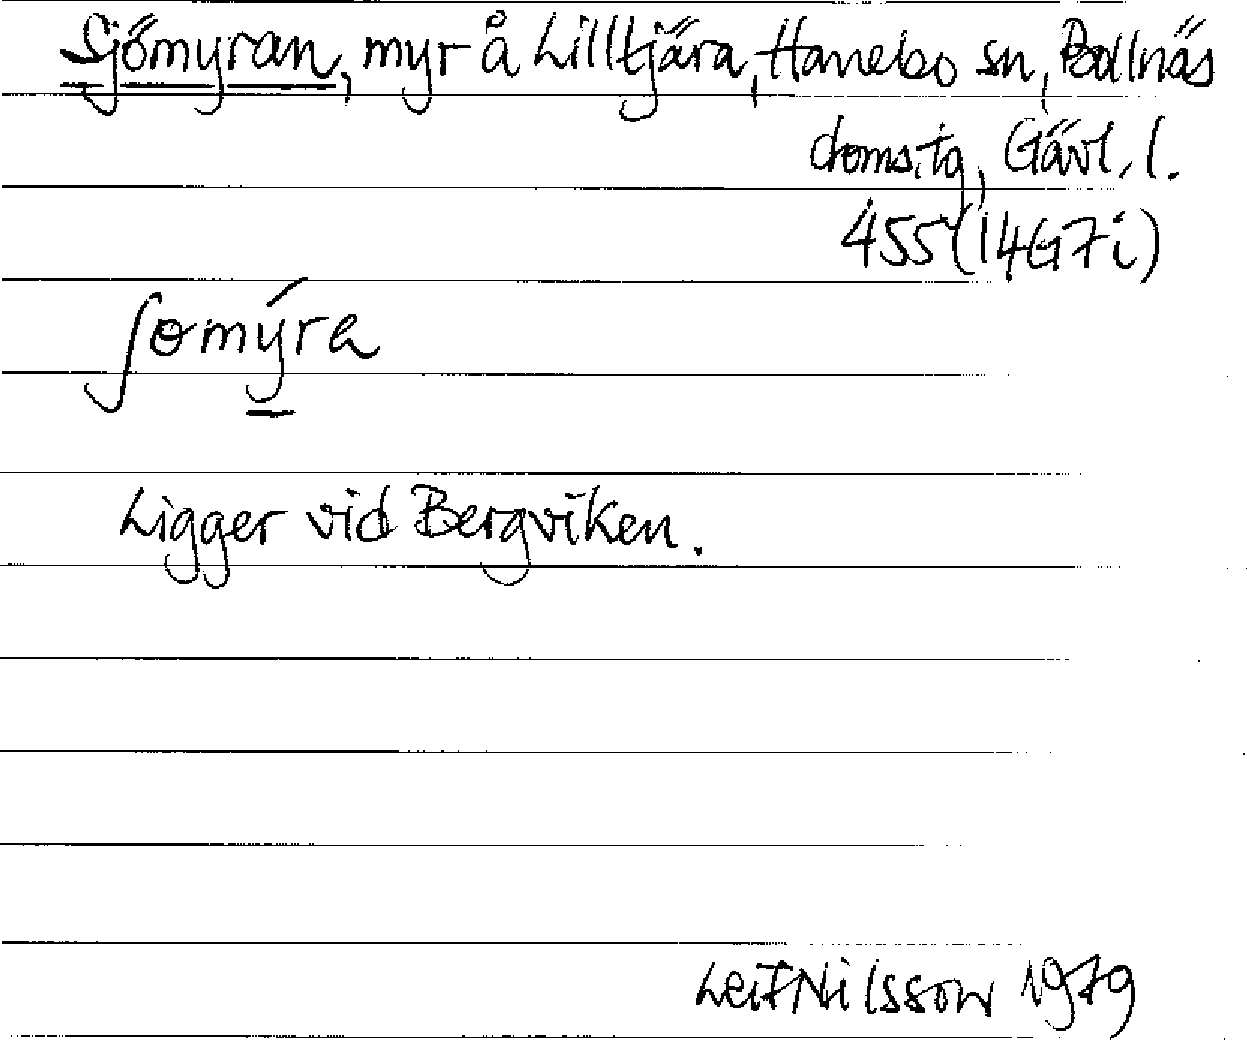 Sjömyran, myr å Lilltjära, Hanebo sn, Bollnäs
doms.tg, Gävl. l.
455 (14G7i)
ʃɵmýra
Ligger vid Bergviken.
Leif Nilsson 1979